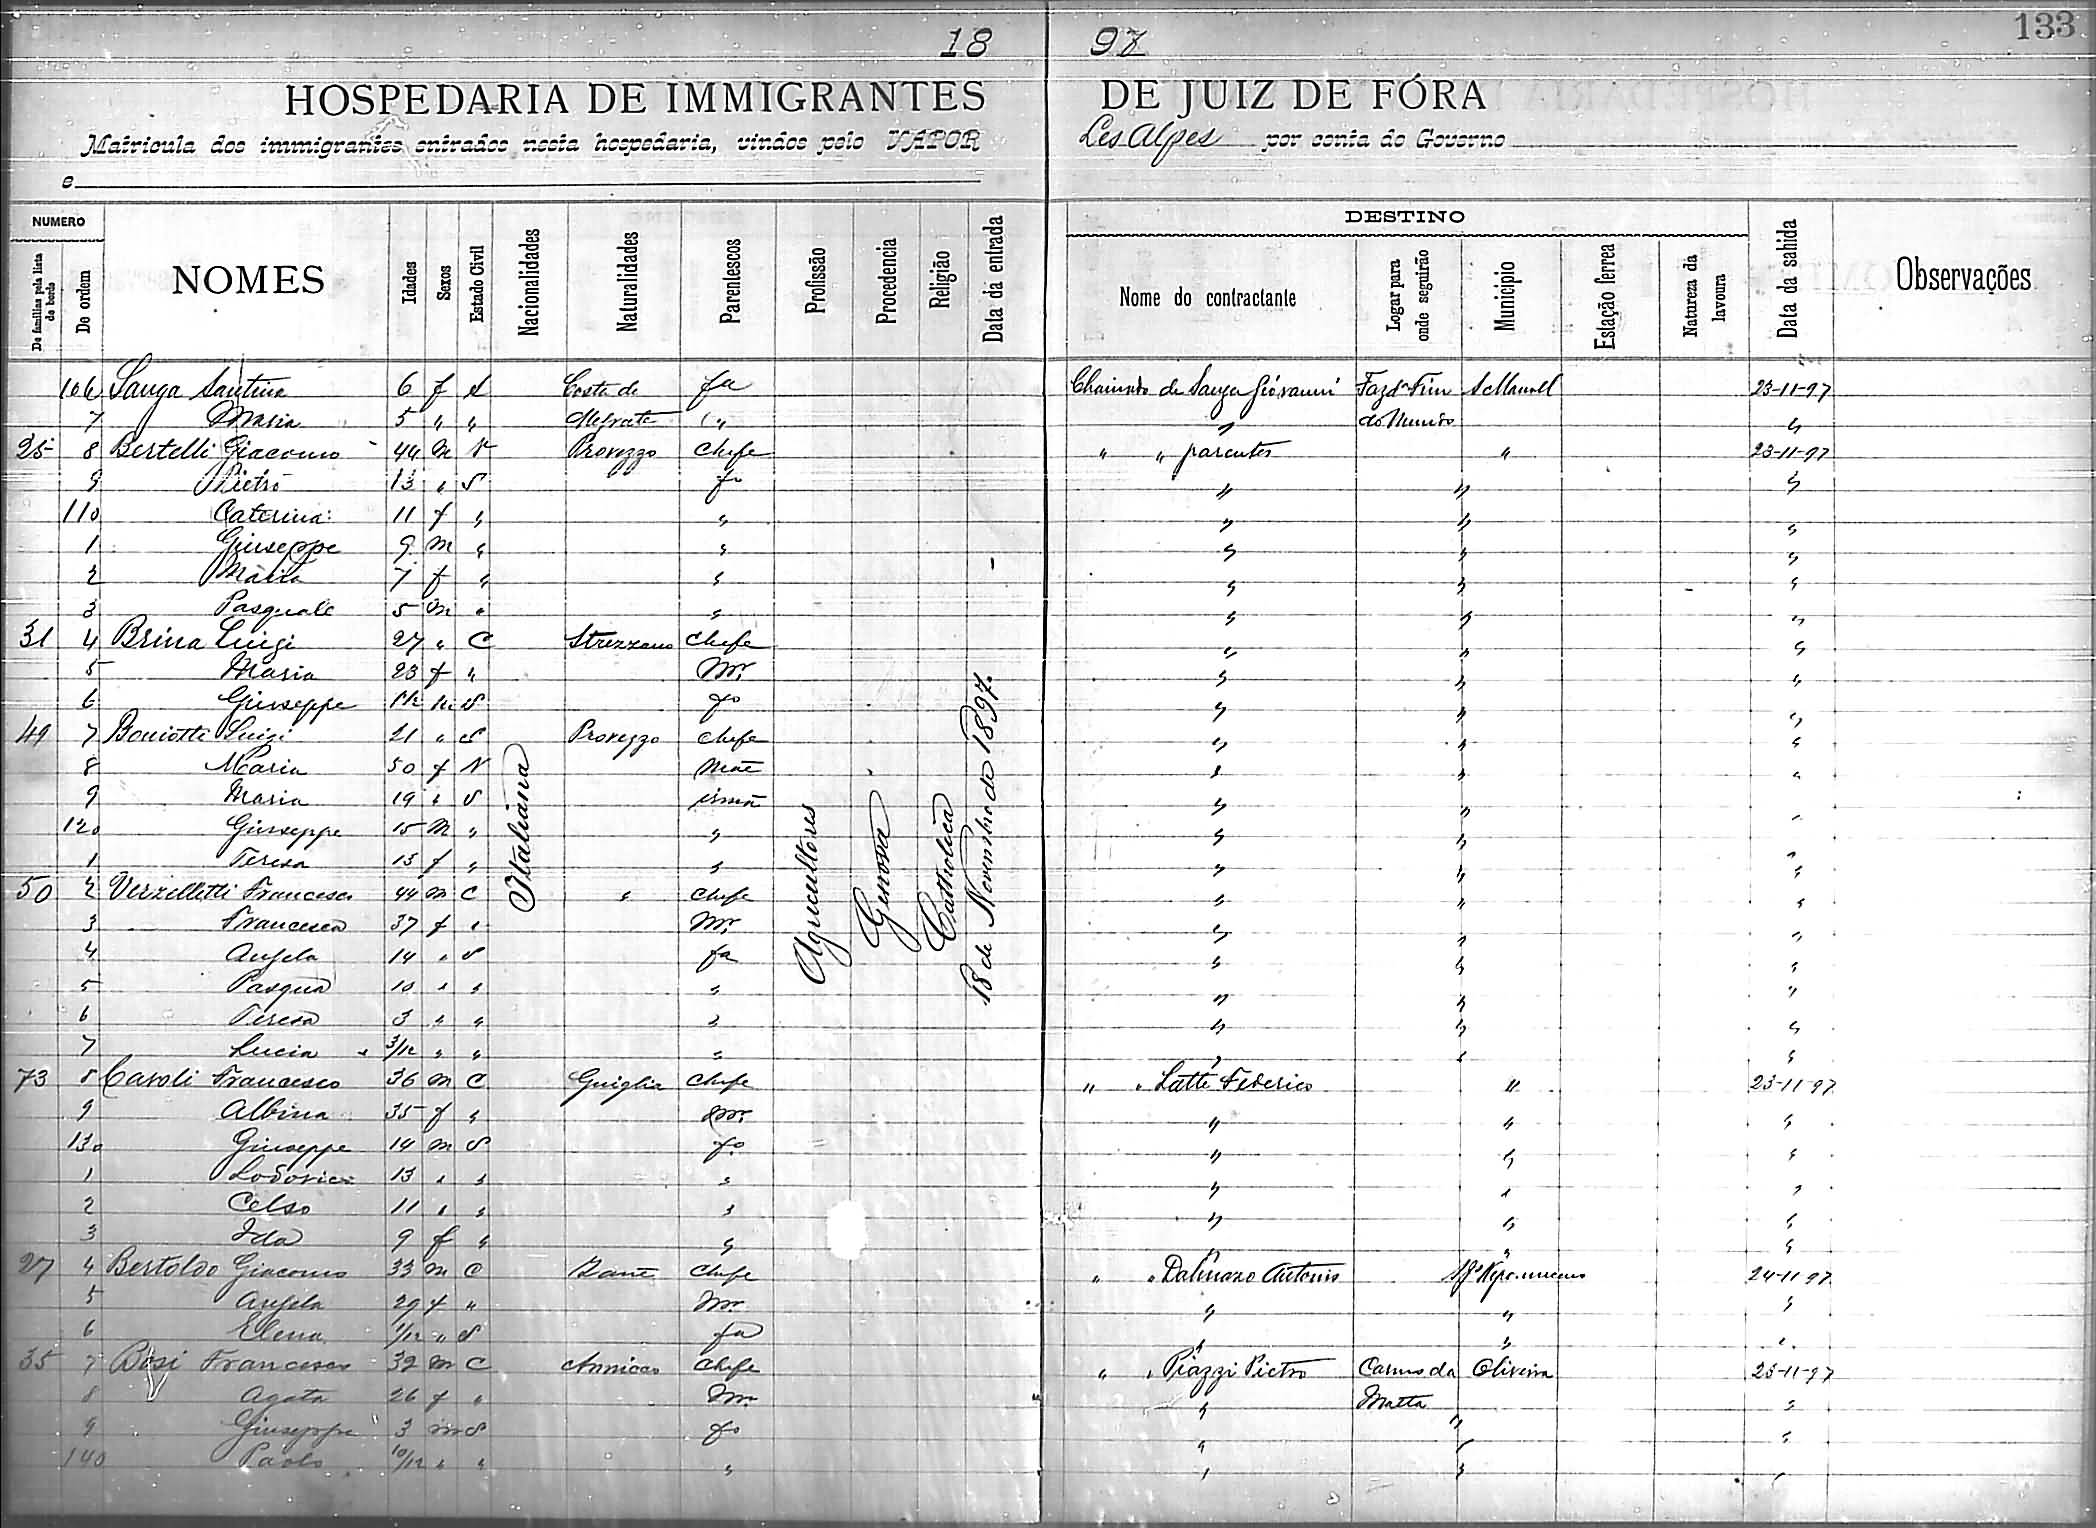 133
18 97
HOSPEDARIA DE IMMIGRANTES DE JUIZ DE FÓRA
Matricula dos immigrantes entrados nesta hospedaria, vindos pelo VAPOR Les Alpes por conta do Governo
e
NUMERO
De familias pela lista de bordo
De ordem
NOMES
Idades
Sexos
Estado Civil
Nacionalidades
Naturalidades
Parentescos
Profissão
Procedencia
Religião
Data da entrada
DESTINO
Nome do contractante
Logar para onde seguirão
Municipio
Estação ferrea
Natureza da lavoura
Data da sahida
Observações
Italiana
Agricultores
Genova
Catholica
18 de Novembro de 1897.
106 Sanga Santina 6 f S Costa de fa Chamado de Sanga Giovanni Fazda Fim S Manoel 23-11-97
7 Maria 5 " " Melrate " " do Mundo "
25 8 Bertelli Giacomo 44 m V Provezzo Chefe " " parentes " 23-11-97
9 Pietro 13 " S fo " " "
110 Caterina 11 f " " " " "
1 Giuseppe 9 m " " " " "
2 Maria 7 f " " " " "
3 Pasquale 5 m " " " " "
31 4 Brina Luigi 27 " C Strezzano Chefe " " "
5 Maria 23 f " Mr. " " "
6 Giuseppe m S fo " " "
49 7 Boniotti Luigi 21 " S Provezzo Chefe " " "
8 Maria 50 f V Mãe " " "
9 Maria 19 " S irmã " " "
120 Giuseppe 15 m " " " " "
1 Teresa 13 f " " " " "
50 2 Verzelletti Francesco 44 m C " Chefe " " "
3 Francesca 37 f " Mr. " " "
4 Angela 14 " S fa " " "
5 Pasqua 10 " " " " " "
6 Teresa 3 " " " " " "
7 Lucia 3/12 " " " " " "
73 8 Caroli Francesco 36 m C Guiglia Chefe " " Latti Federico " 23-11-97
9 Albina 35 f " Mr. " " "
130 Giuseppe 14 m S fo " " "
1 Lodovico 13 " " " " " "
2 Celso 11 " " " " " "
3 Ida 9 f " " " " "
27 4 Bertoldo Giacomo 33 m C Zané Chefe " " Dalmazo Antonio Nepomuceno 24-11-97
5 Angela 29 f " Mr. " " "
6 Elena 1/12 " S fa " " "
35 7 Bosi Francesco 32 m C Annicco Chefe " " Piazzi Pietro Carmo da Oliveira 25-11-97
8 Agata 26 f " Mr. " Matta "
9 Giuseppe 3 m S fo " " "
140 Paolo 10/12 " " " " " "